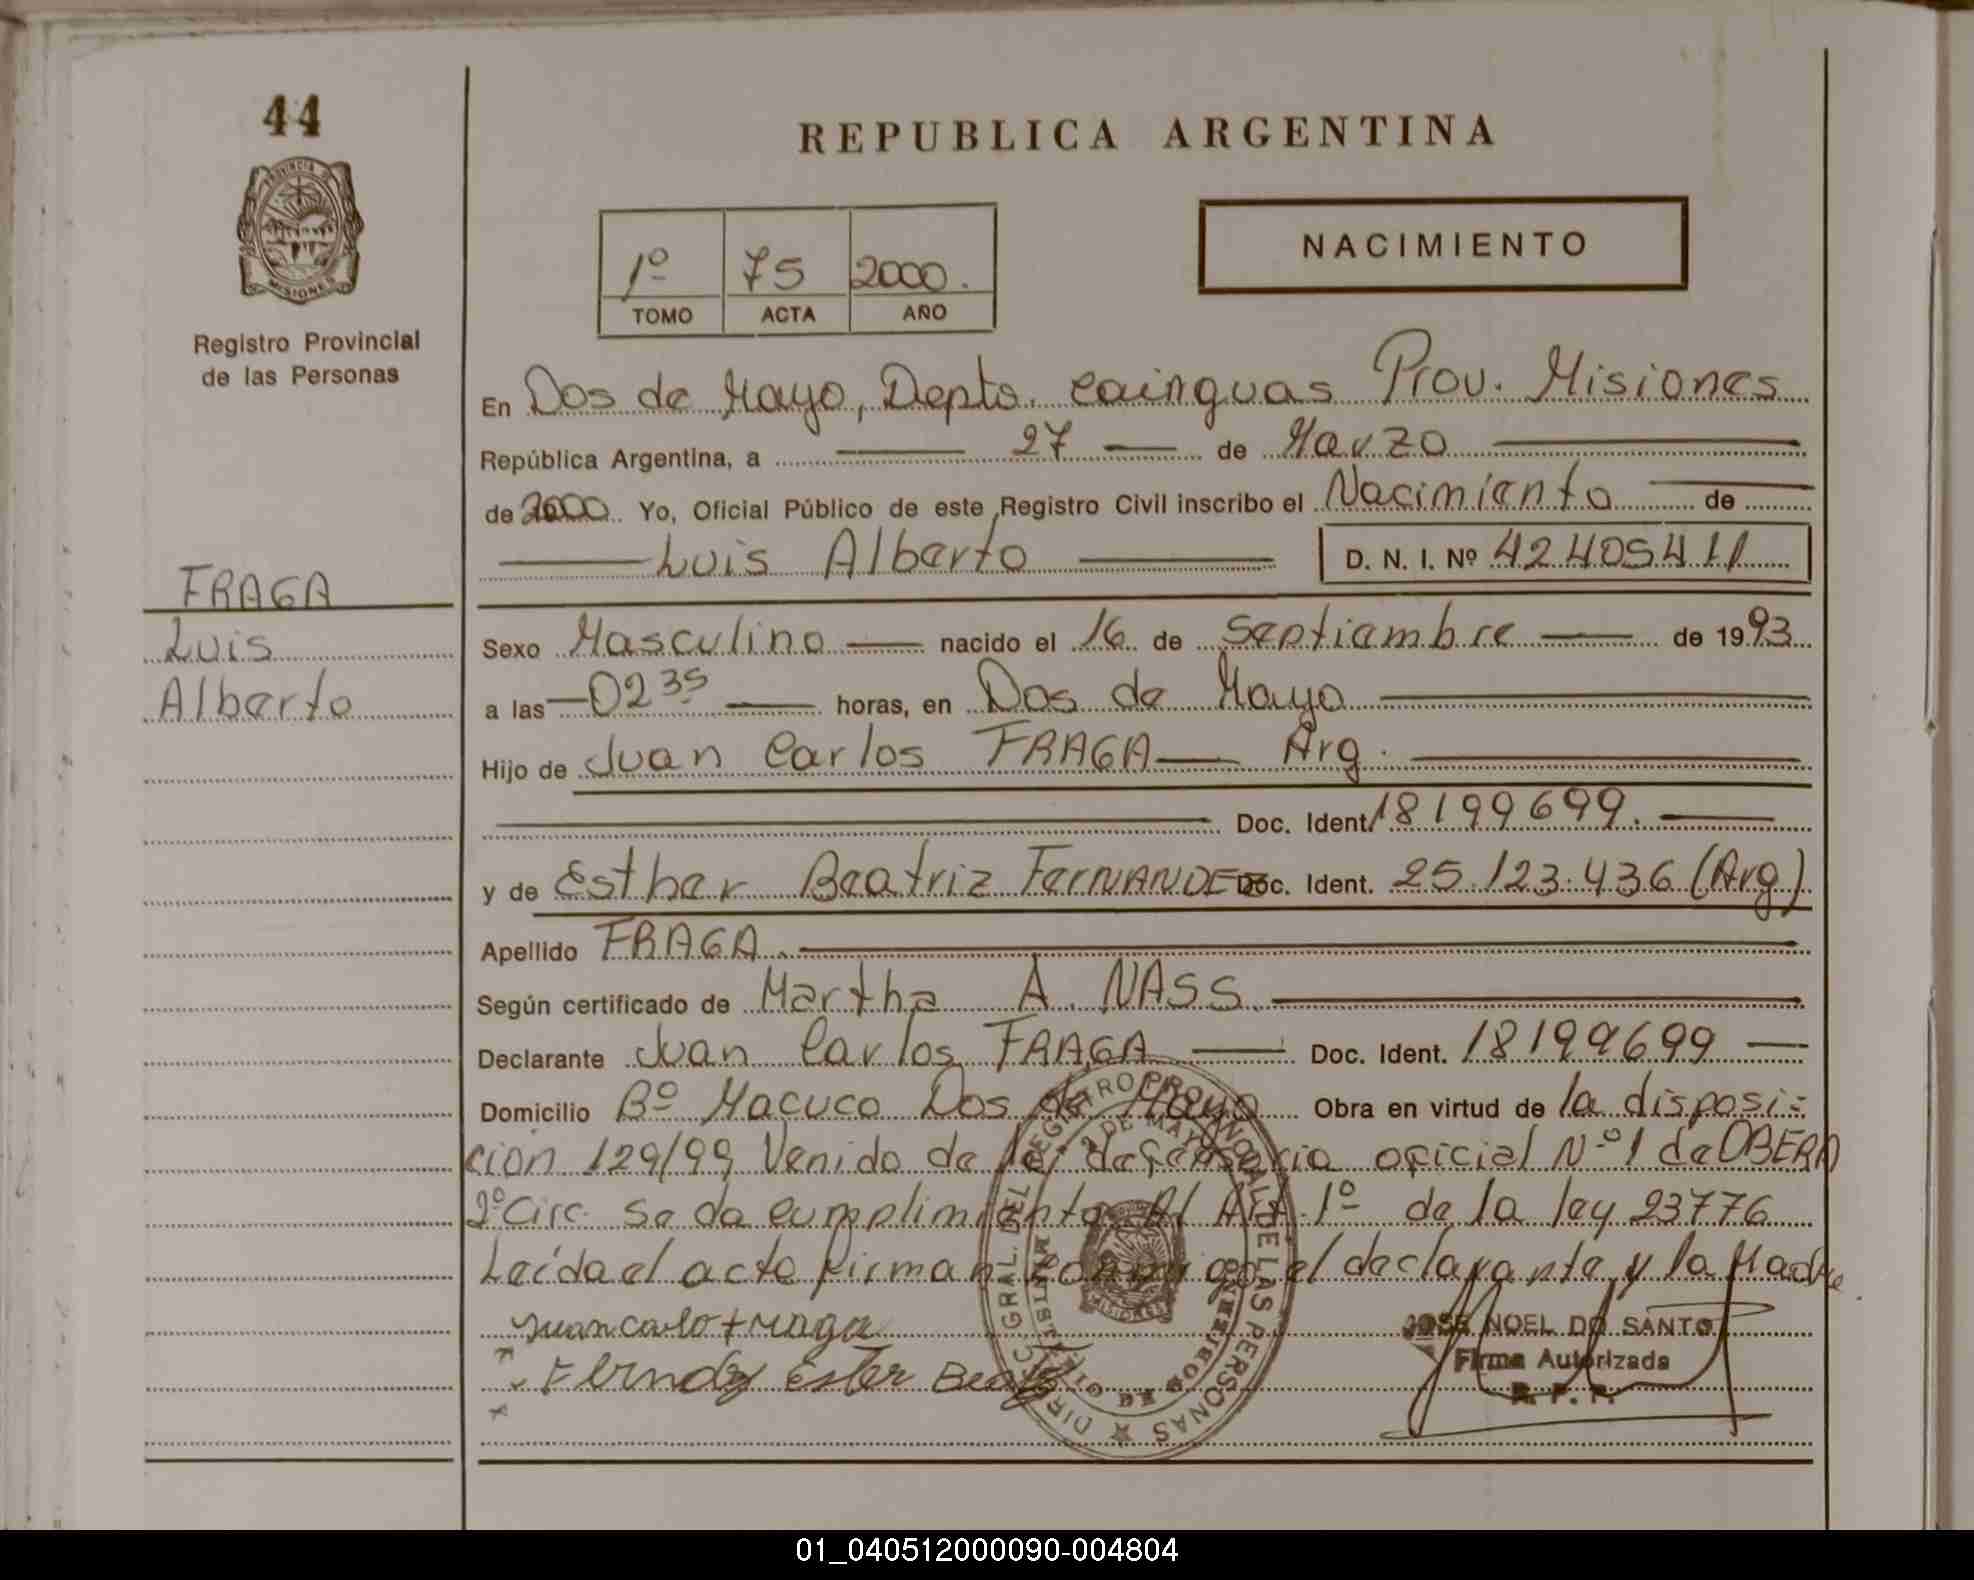 44
REPUBLICA ARGENTINA
PROVINCIA DE
MISIONES
Registro Provincial
de las Personas
1º 75 2000.
TOMO ACTA AÑO
NACIMIENTO
En Dos de Mayo, Depto. Cainguas Prov. Misiones
República Argentina, a 27 de Marzo
de 2000 Yo, Oficial Público de este Registro Civil inscribo el Nacimiento de
Luis Alberto D. N. I. Nº 42405411
FRAGA
Luis
Alberto
Sexo Masculino nacido el 16 de Septiembre de 1993
a las 02 35 horas, en Dos de Mayo
Hijo de Juan Carlos FRAGA Arg.
Doc. Ident. 18199699.
y de Esther Beatriz FerNANDEZ Doc. Ident. 25.123.436 (Arg)
Apellido FRAGA.
Según certificado de Martha A. NASS.
Declarante Juan Carlos FRAGA Doc. Ident. 18199699
Domicilio Bº Macuco Dos de Mayo Obra en virtud de la disposi-
ción 129/99 Venido de la defensoria oficial Nº 1 de OBERA
2º Circ. Se da cumplimiento Al Art. 1º de la ley 23776
Leída el acta firman conmigo el declarante y la Madre
Juan Carlo Fraga
Fernadz Ester Beatriz
JOSE NOEL DO SANTO
Firma Autorizada
R. P. P.
DIREC. GRAL. DEL REGISTRO PROVINCIAL DE LAS PERSONAS
2 DE MAYO
MISIONES
01_040512000090-004804